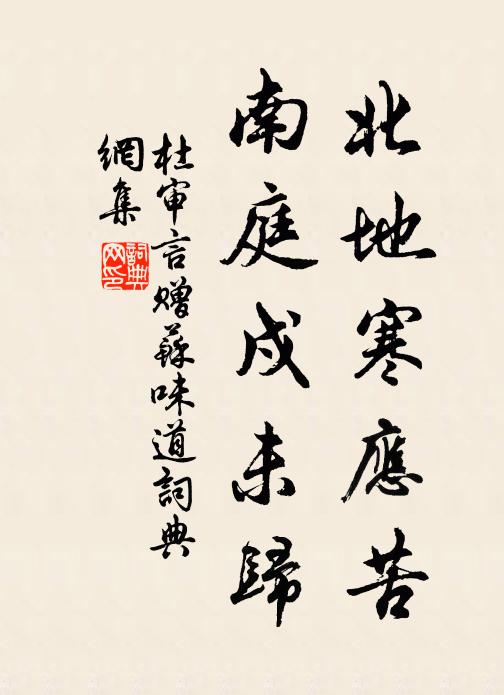 北地寒應苦
南庭戍未歸
杜审言赠蘇味道詞典
網集
詞典網印